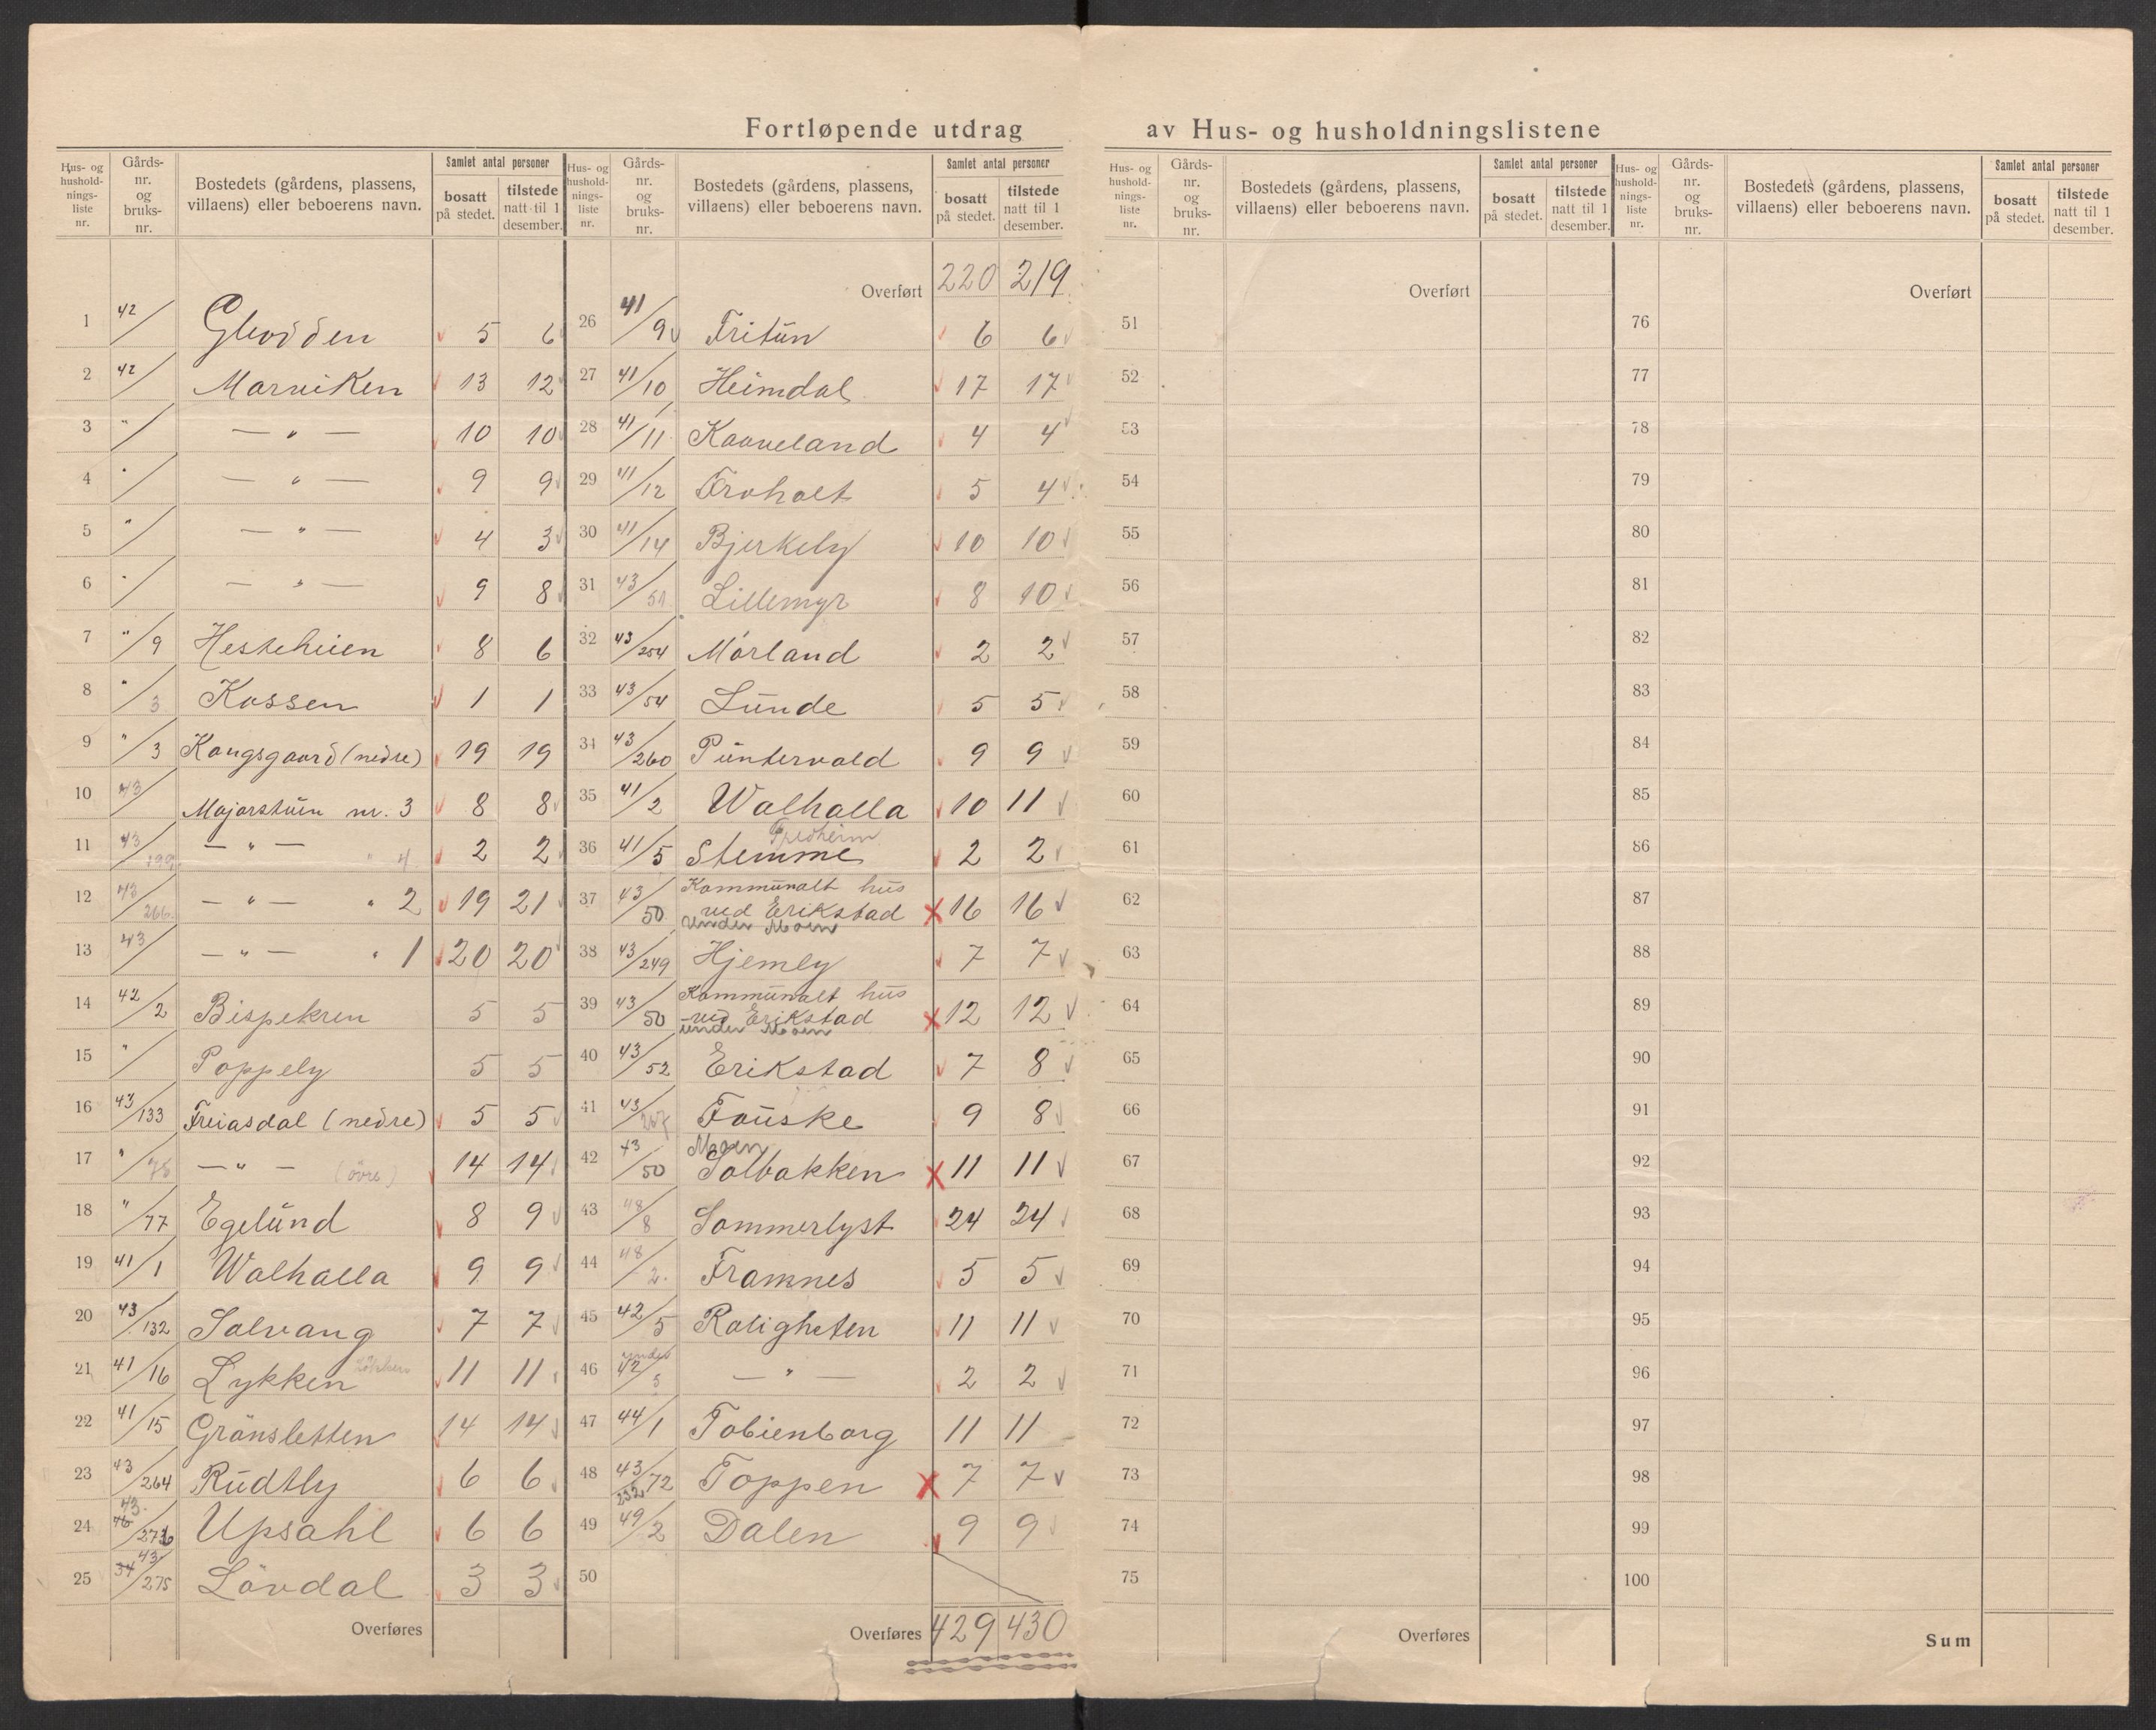 Fortløpende utdrag av Hus- og husholdningslistene
Hus- og husholdningsliste nr. | Gårdsnr. og bruksnr. | Bostedets (gårdens, plassens, villaens) eller beboerens navn. | Samlet antal personer bosatt på stedet. | tilstede natt til 1 desember.
1 42/ Glodden 5 6
2 42/ Marviken 13 12
3 "/ — " — 10 10
4 "/ — " — 9 9
5 "/ — " — 4 3
6 "/ — " — 9 8
7 "/9 Hesteheien 8 6
8 "/3 Kossen 1 1
9 "/3 Kongsgaard (nedre) 19 19
10 43/ Majorstuen nr. 3 8 8
11 43/199 — " — " 4 2 2
12 43/266 — " — " 2 19 21
13 43/ — " — " 1 20 20
14 42/2 Bispekren 5 5
15 "/ Poppely 5 5
16 43/133 Freiasdal (nedre) 5 5
17 "/78 — " — (övre) 14 14
18 "/77 Egelund 8 9
19 41/1 Walhalla 9 9
20 43/132 Solvang 7 7
21 41/16 Lykken 11 11
22 41/15 Grönsletten 14 14
23 43/264 Rudtly 6 6
24 43 Upsahl 6 6
25 34 43/275 Lövdal 3 3
Overføres
Hus- og husholdningsliste nr. | Gårdsnr. og bruksnr. | Bostedets (gårdens, plassens, villaens) eller beboerens navn. | Samlet antal personer bosatt på stedet. | tilstede natt til 1 desember.
Overført 220 219
26 41/9 Fritun 6 6
27 41/10 Heimdal 17 17
28 41/11 Kaaveland 4 4
29 41/12 Froholt 5 4
30 41/14 Bjerkely 10 10
31 43/51 Lillemyr 8 10
32 43/254 Mörland 2 2
33 43/54 Lunde 5 5
34 43/260 Puntervold 9 9
35 41/2 Walhalla 10 11
Fredheim
36 41/5 Stemme 2 2
Kommunalt hus
37 43/50 ved Erikstad 16 16
under Moen
38 43/249 Hjemly 7 7
Kommunalt hus
39 43/50 ved Erikstad 12 12
under Moen
40 43/52 Erikstad 7 8
41 43/ Fauske 9 8
Moen
42 43/50 Solbakken 11 11
43 48/8 Sommerlyst 24 24
44 48/2 Framnes 5 5
45 42/5 Roligheten 11 11
under
46 42/5 — " — 2 2
47 44/1 Tobienborg 11 11
48 43/72 232 Toppen 7 7
49 49/2 Dalen 9 9
50
Overføres 429 430
Hus- og husholdningsliste nr. | Gårdsnr. og bruksnr. | Bostedets (gårdens, plassens, villaens) eller beboerens navn. | Samlet antal personer bosatt på stedet. | tilstede natt til 1 desember.
Overført
51
52
53
54
55
56
57
58
59
60
61
62
63
64
65
66
67
68
69
70
71
72
73
74
75
Overføres
Hus- og husholdningsliste nr. | Gårdsnr. og bruksnr. | Bostedets (gårdens, plassens, villaens) eller beboerens navn. | Samlet antal personer bosatt på stedet. | tilstede natt til 1 desember.
Overført
76
77
78
79
80
81
82
83
84
85
86
87
88
89
90
91
92
93
94
95
96
97
98
99
100
Sum